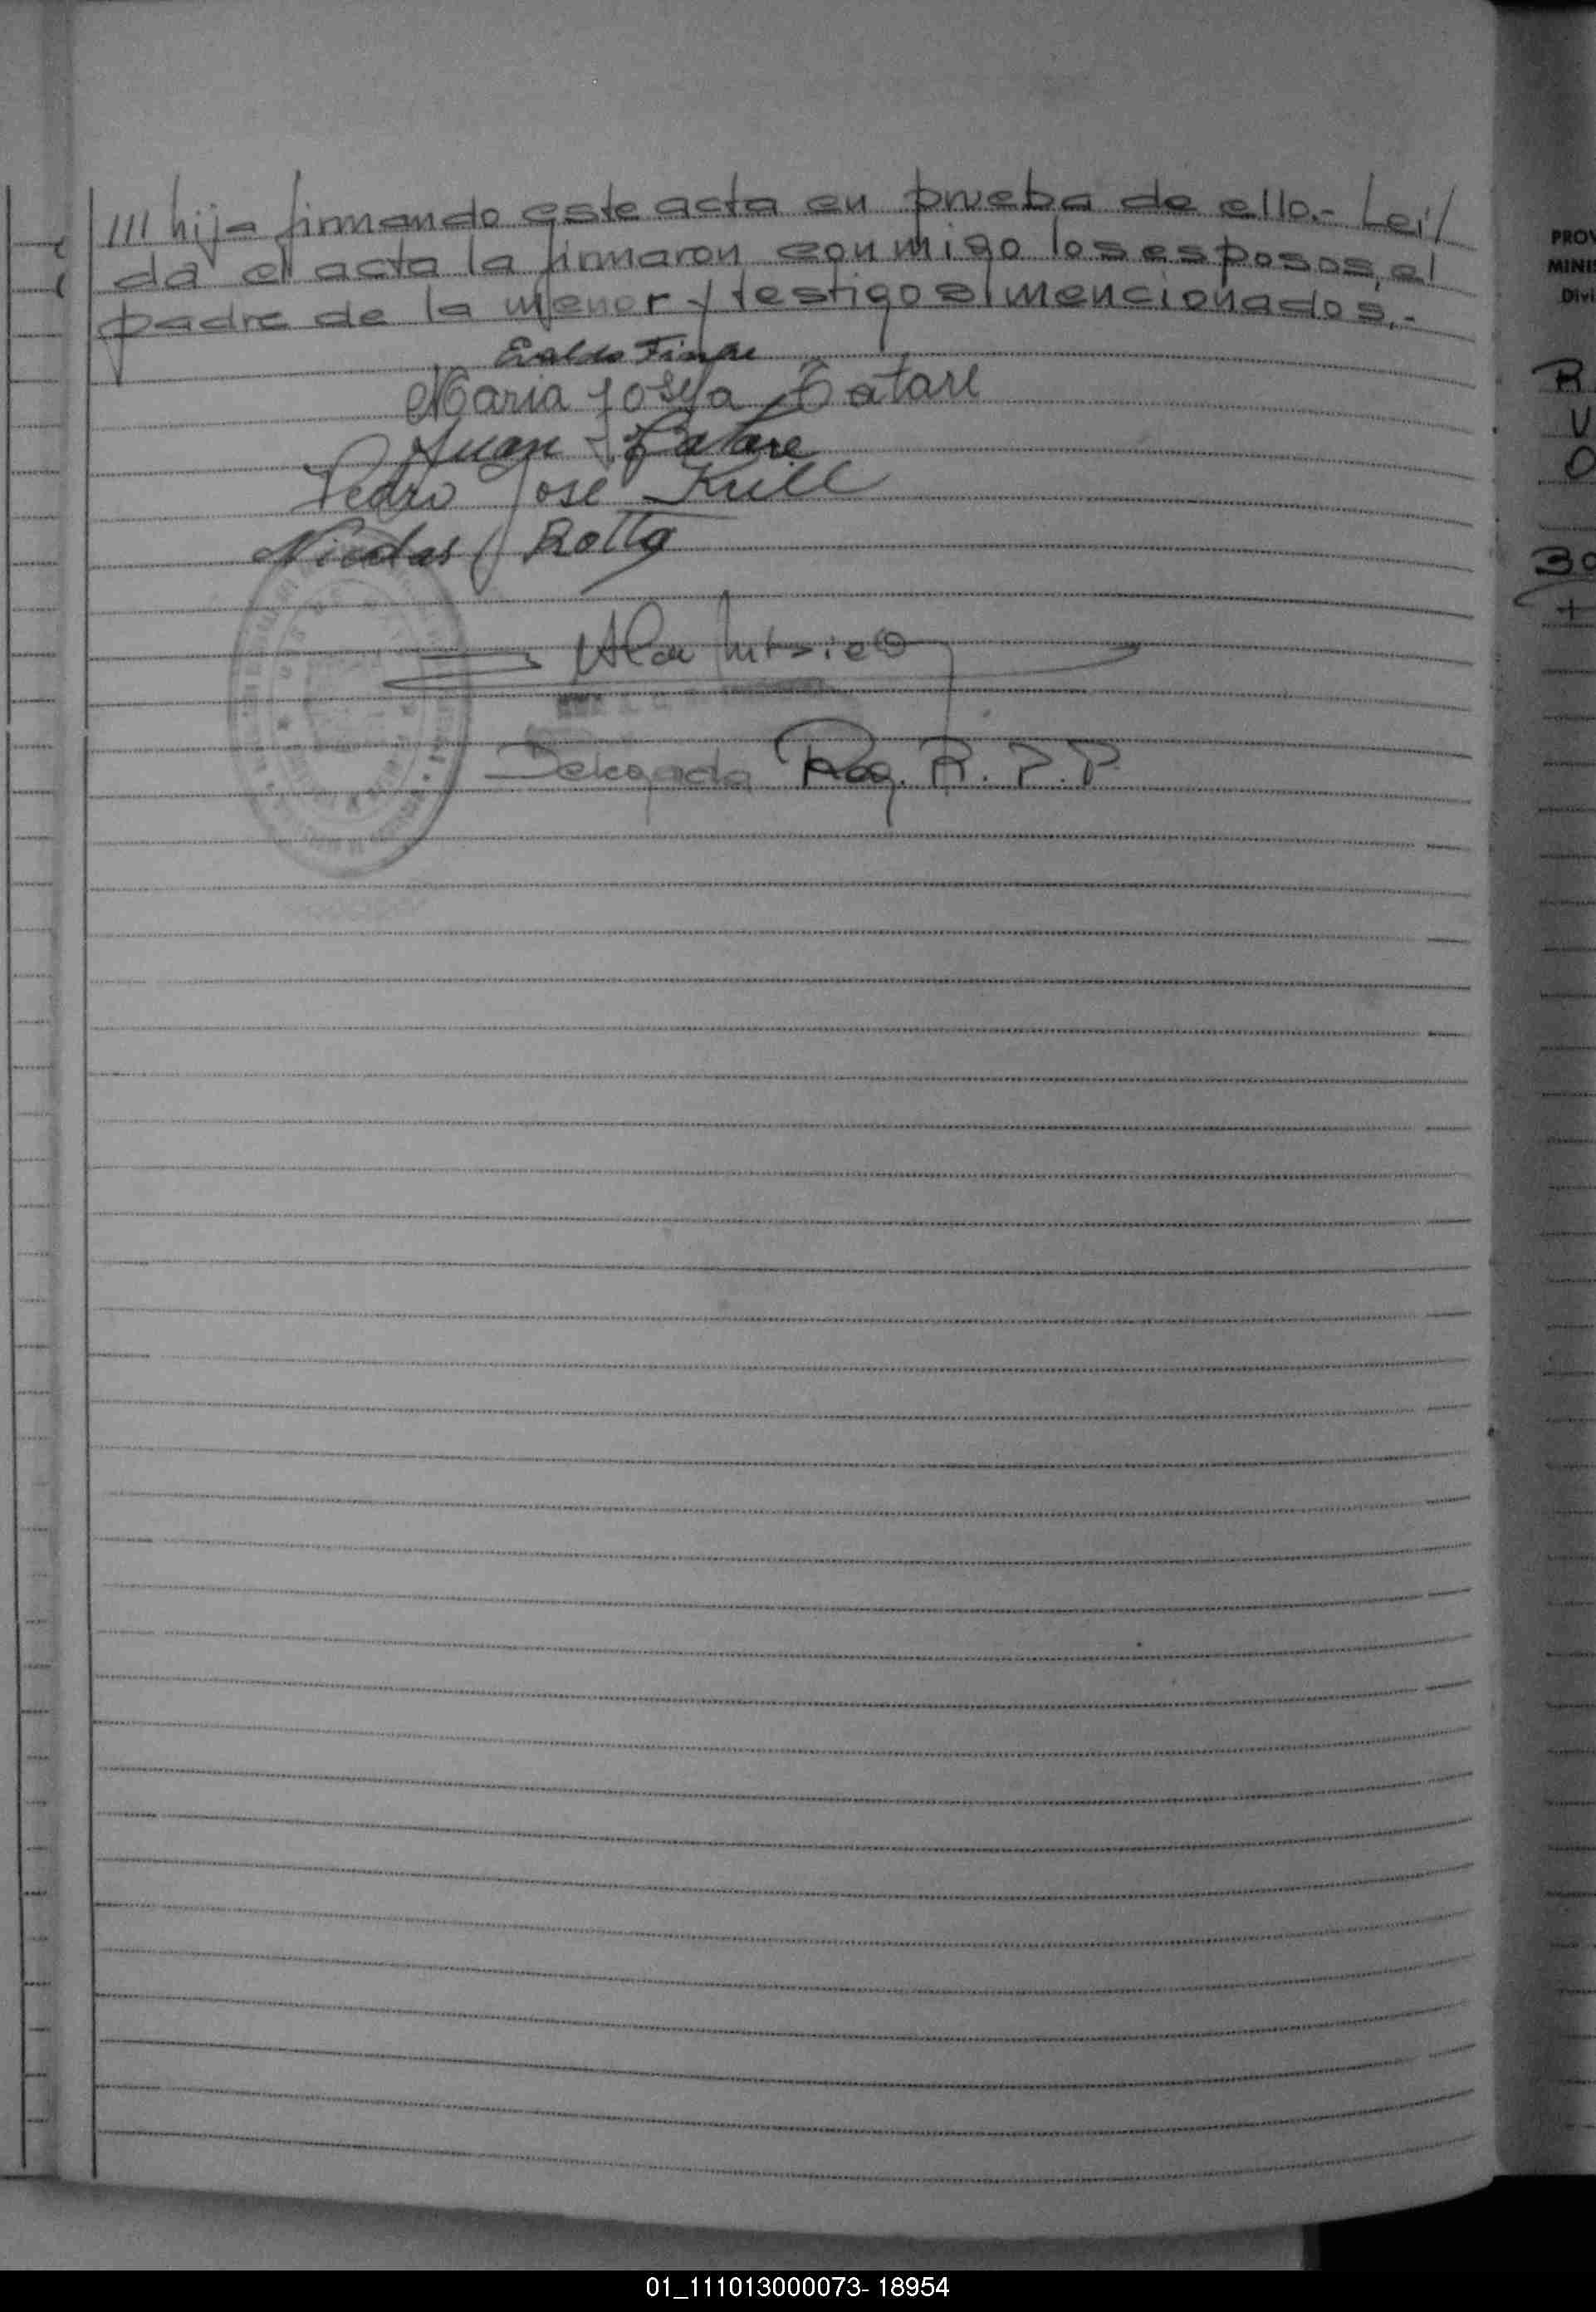 /// hija firmando este acta en prueba de ello.- Leí/
da el acta la firmaron conmigo los esposos, el
padre de la menor y testigos mencionados.-
Maria Josefa
Juan
Pedro José Krill
Nicolas J Rotta
Delegada Reg. R. P. P.
PROV
MINIS
Divi
R
V
O
30
01_111013000073- 18954